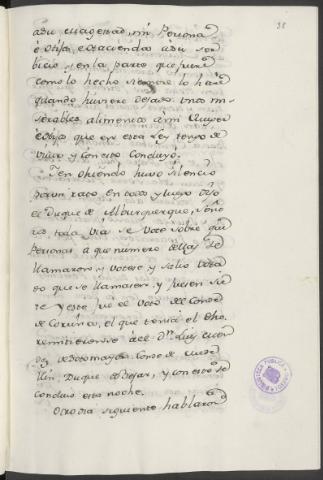 38
a su magestad, mi Persona
è Hijos, e Hacienda a su ser-
bicio y en la parte que fuere
como lo hecho siempre lo haré
quando huviere dejado unos mi-
serables alimentos a mi Muger
è Hijos que en esta Ley tengo de
vivir y con esto Concluyò.
Y en oyiendo huvo silencio
por un rato en todos y luego dijo
el Duque de Alburquerque, Seño-
res, toda via se Vote sobre que
Personas a que numero dellas se
llamaren y Votose y salio Vota-
do que se llamasen y fuesen sie-
te y este fue el Voto del Conde
de Coruña, el que tenia el dho.
remitiendose àel Dn. Luis
de Sotomayor Conde de
Duque de Bejar, y con esto se
Concluio esta noche.
Otro dia siguiente hablaron